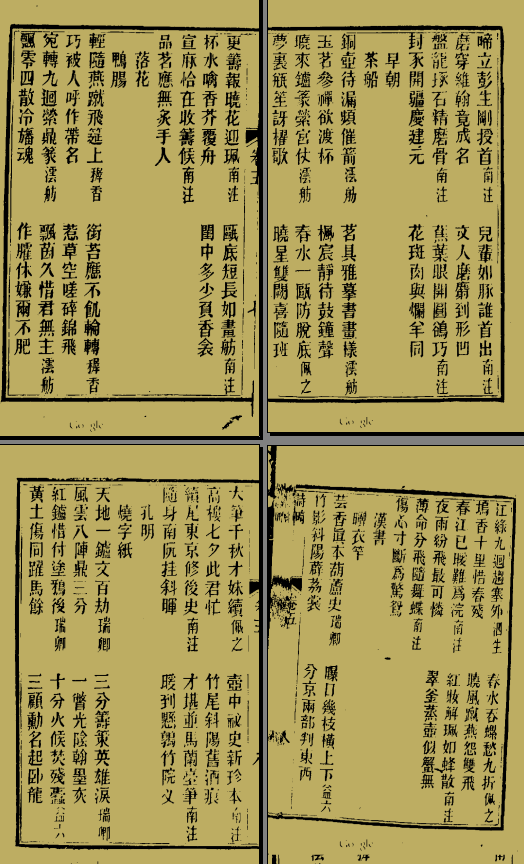 啼立彭生剛授首南注
兒輩如豚誰首出南注
磨穿維翰竟成名
文人磨麝到形凹
盤龍琢石精磨骨南注
蕉葉眼開圓鴝巧南注
封豕開疆慶建元
花斑肉與爛羊同
早朝
茶船
銅壺待漏頻催箭澐舫
茗具雅摹書畫樣澐舫
玉茗參禪欲渡杯
楓宸靜待鼓鐘聲
曉來鑪篆縈宮仗澐舫
春水一甌防脫底佩之
夢裏瓶笙訝櫂歌
曉星雙闕喜隨班
更籌報曉花迎珮南注
甌底短長如畫舫南注
杯水噙香芥覆舟
閨中多少負香衾
宣麻恰在收籌候南注
品茗應無炙手人
落花
鴨腸
輕隨燕蹴飛筵上稺香
銜苔應不飢輪轉稺香
巧被人呼作帶名
惹草空嗟碎錦飛
宛轉九迴縈鼎篆澐舫
飄茵久惜君無主澐舫
飄零四散冷旛魂
作臛休嫌爾不肥
江綠九迴趨塞外
春水愁九折佩之
塢香十里惜春殘
曉風蹴燕怨雙飛
春江已暖難爲浣南注
紅妝解珮如蜂散南注
夜雨紛飛最可憐
翠釜蒸壺似蟹無
薄命分飛隨舞蝶南注
傷心寸斷爲驚鴛
漢書
曬衣竿
芸香眞本葫蘆史瑞卿
曝日幾枝橫上下益六
竹影斜陽薜荔裳
分京兩部判東西
大筆千秋才妹續佩之
壺中祕史新珍本南注
高樓七夕此君忙
竹尾斜陽舊酒痕
續尾東京修後史南注
才堪並馬蘭臺筆南注
隨身南阮挂斜暉
暖到懸鶉竹院叉
孔明
燒字紙
天地一鑪文百劫瑞卿
三分籌策英雄淚瑞卿
風雲八陣鼎三分
一瞥光陰翰墨灰
紅鑪惜付塗鴉後瑞卿
十分火候焚殘蠹益六
黃土傷同躍馬餘
三顧勳名起臥龍